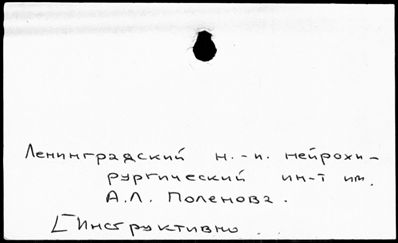 Ленинградский н.-и. нейрохи-
рургический ин-т им.
А.Л. Поленова.
[Инструктивно.